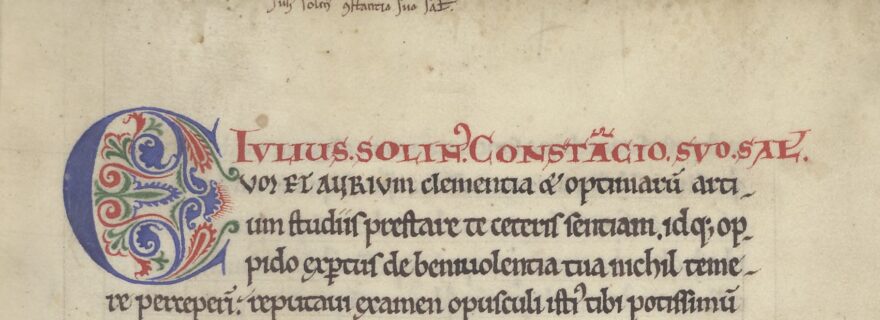 Iuli⁹ solin⁹ ɔstantio suo sał.
IVLIUS. SOLIN⁹. CONSTĀCIO. SVO. SAŁ.
CVOI ET AURIUM clementia ⁊ optimarū arti-
um studiis prestare te ceteris sentiam. idq; op-
pido exptus de beniuolentia tua nichil teme-
re perceperī: reputaui examen opusculi isti⁹ tibi potissimū